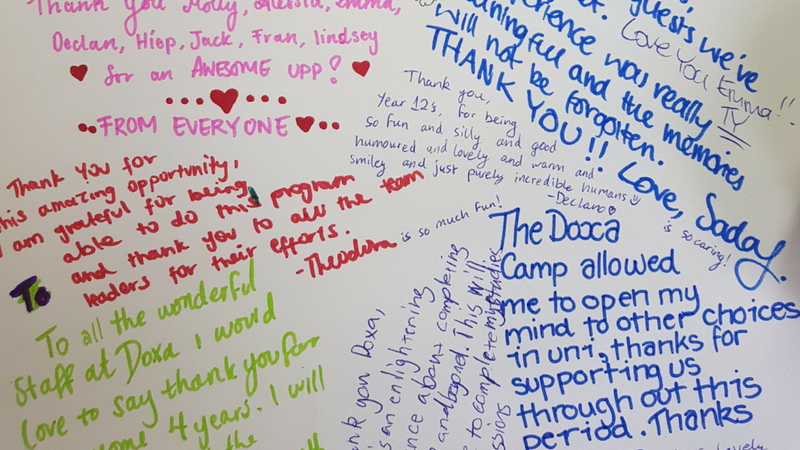 Thank You Molly, Alessia, Emma,
Declan, Hiep, Jack, Fran, lindsey
for an AWESOME UPP!
FROM EVERYONE
guests we've
experience was really
meaningful and the memories
will not be forgotten.
THANK YOU!! Love, Sadaf.
is so caring!
Love You Emma!!
TY
Thank you,
Year 12s, for being
so fun and silly and good
humoured and lovely and warm and
smiley and just purely incredible humans
-Declan
Thank You for
this amazing opportunity,
I am grateful for being
able to do this program
and thank you to all the team
leaders for their efforts.
-Theodora is so much fun!
To
To all the wonderful
staff at Doxa I would
love to say thank you for
4 years. I will
the
Thank you Doxa,
is an enlightening
about completing
and beyond. This will
to complete my studies
The Dooca
Camp allowed
me to open my
mind to other choices
in uni, thanks for
supporting us
through out this
period. Thanks
lovely